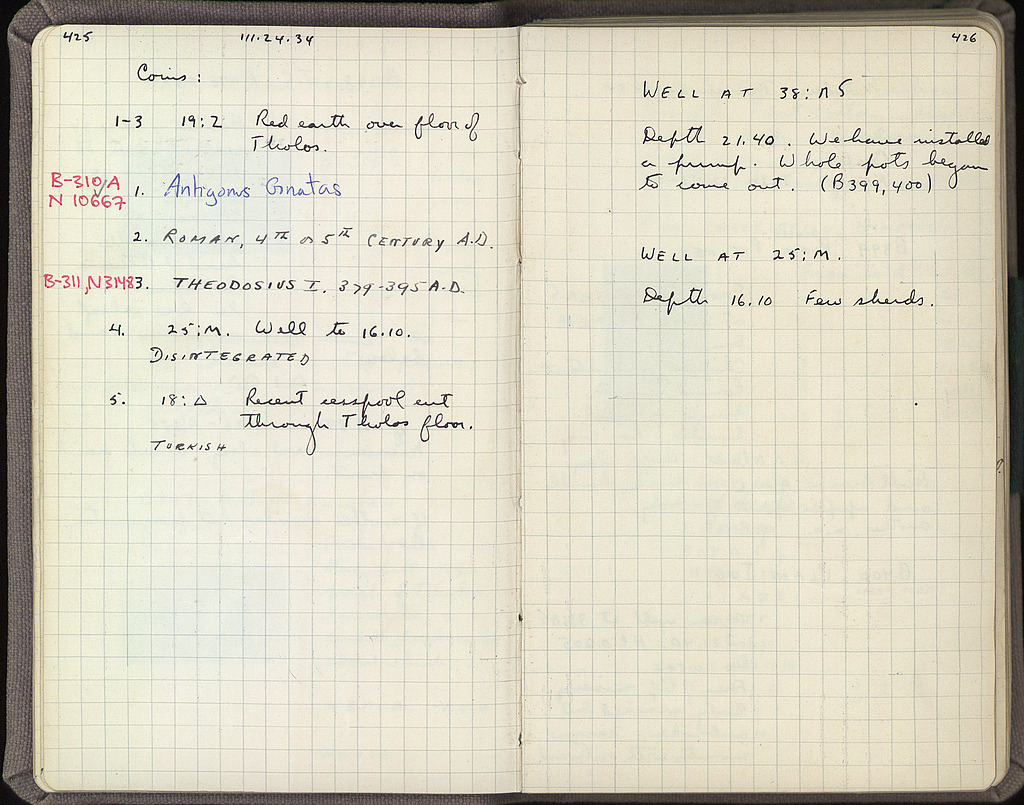 425 111.24.34
Coins :
1-3 19:2 Red earth over floor of
Tholos.
B-310/A
N 10667
1. Antigonus Gnatas
2. ROMAN, 4TH or 5TH CENTURY A.D.
B-311, N3148 3. THEODOSIUS I. 379-395 A.D.
4. 25:M. Well to 16.10.
DISINTEGRATED
5. 18:Δ Recent cesspool cut
through Tholos floor.
TURKISH
426
WELL AT 38:ΛS
Depth 21.40. We have installed
a pump. Whole pots began
to come out. (B399,400)
WELL AT 25:M.
Depth 16.10 Few sherds.